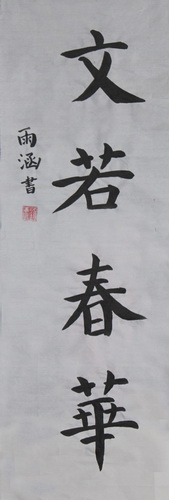 文若春華
雨涵書